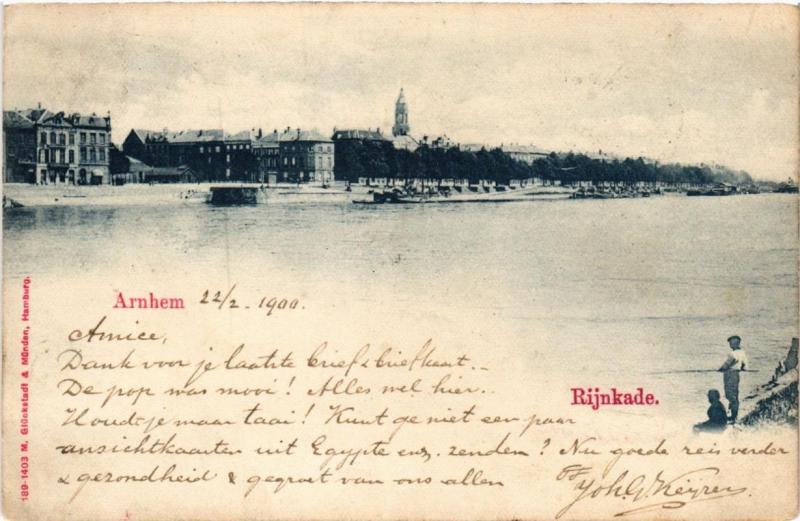 Arnhem 22/2 - 1900.
Amice,
Dank voor je laatste brief & briefkaart. -
De pop was mooi! Alles wel hier.
Houdt je maar taai! Kunt ge niet een paar
Rijnkade.
ansichtkaarten uit Egypte enz. zenden? Nu goede reis verder
& gezondheid & gegroet van ons allen
Joh. G.
189-1403 M. Glückstadt & Münden, Hamburg.